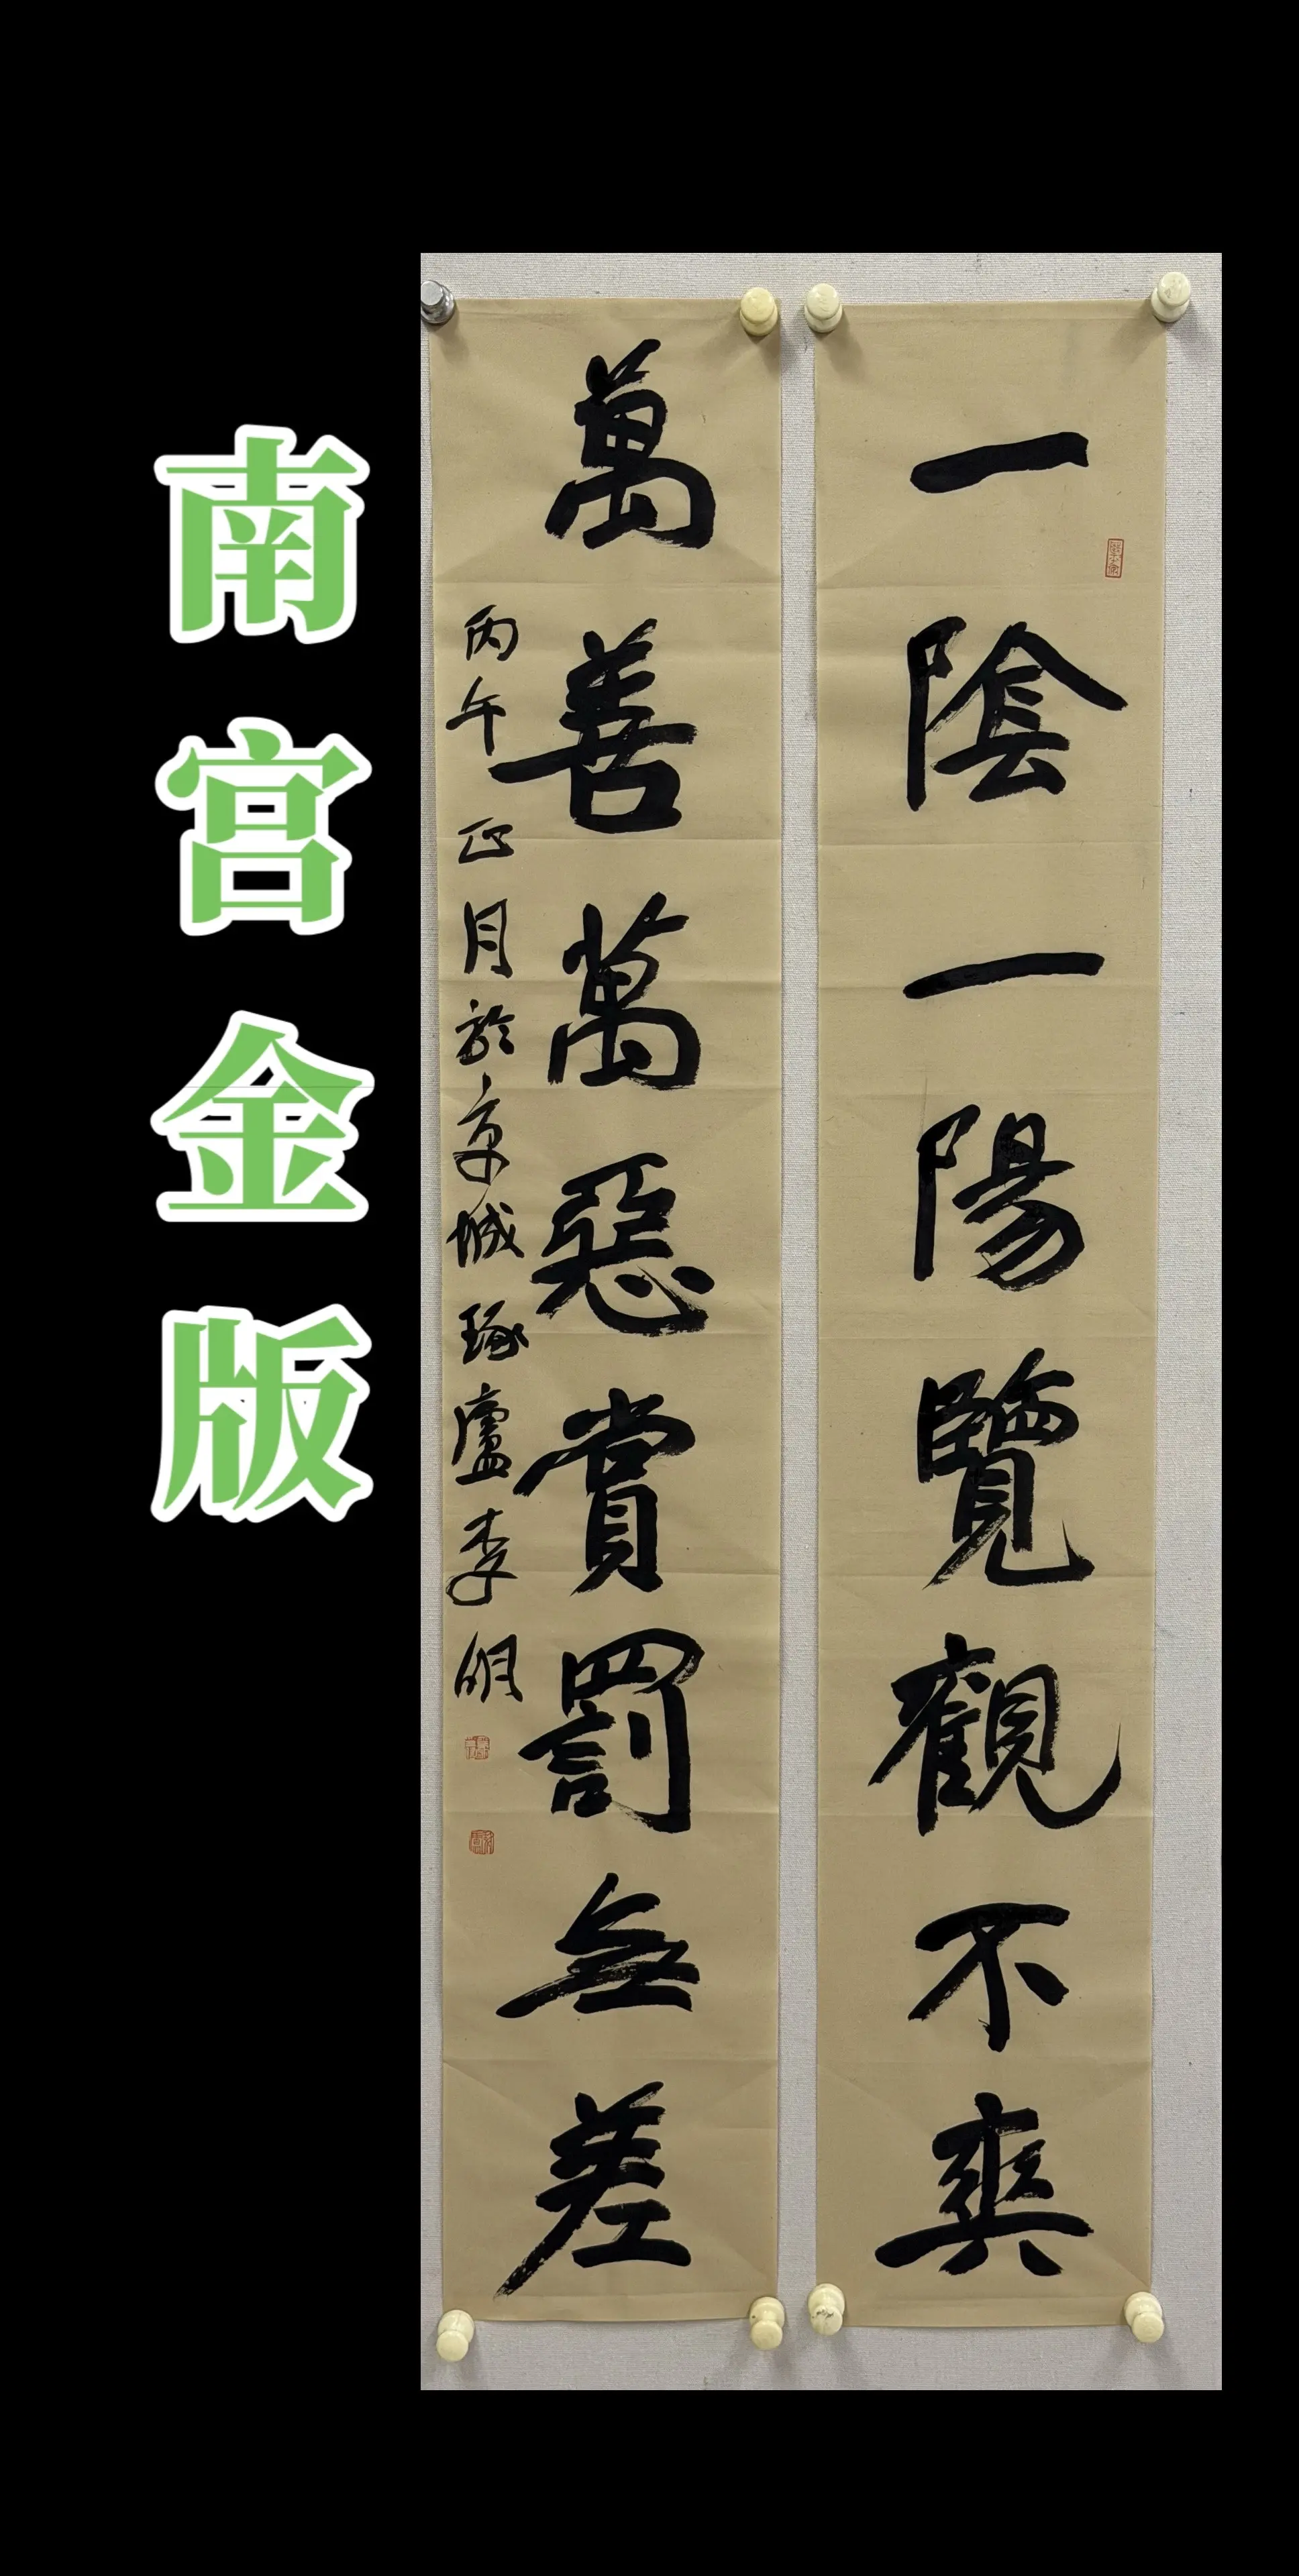 一陰一陽覽觀不爽
萬善萬惡賞罰無差
丙午正月於京城琢廬李明
南宫金版